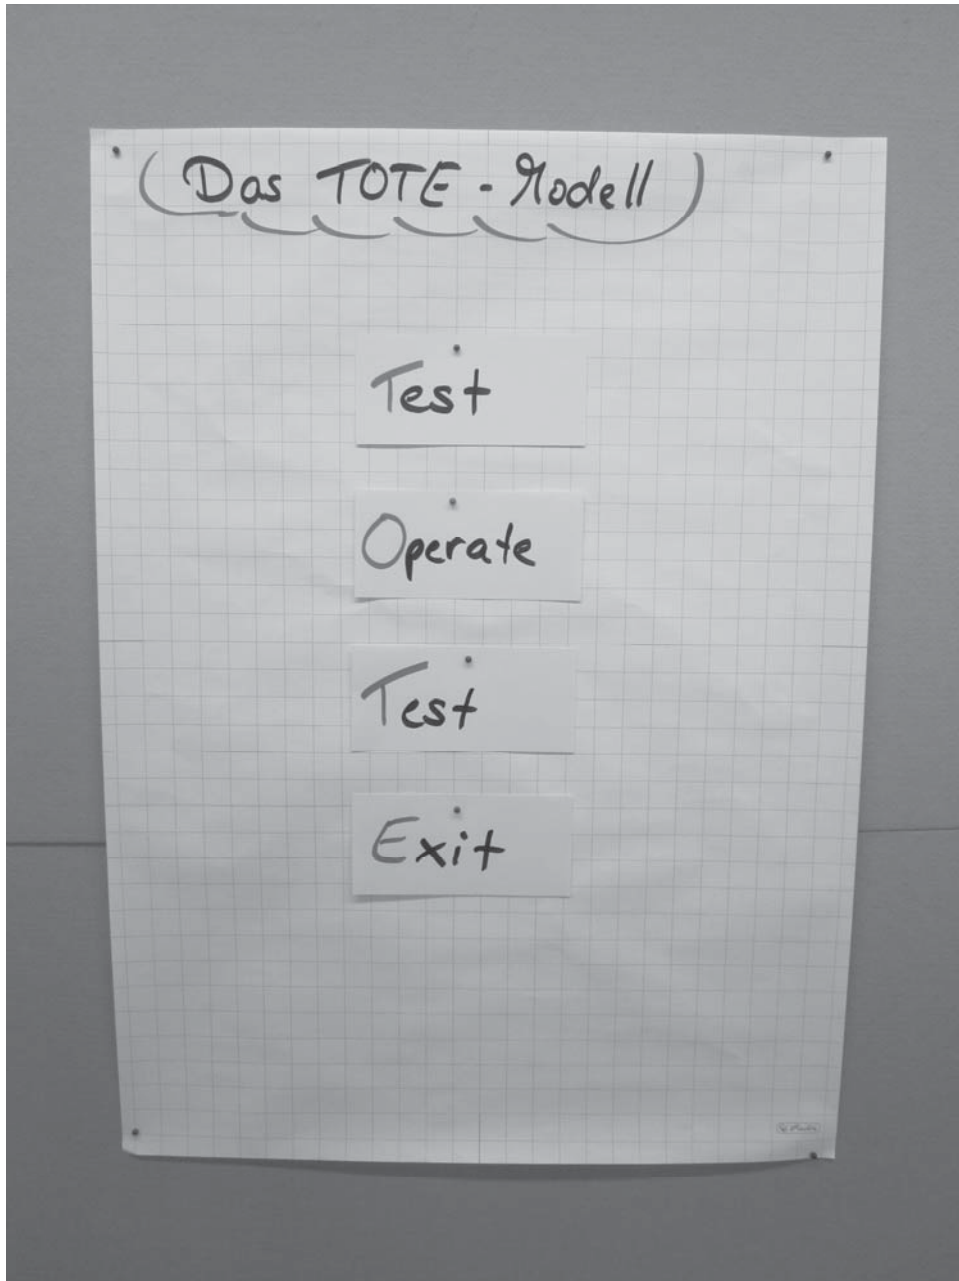 Das TOTE - Modell
Test
Operate
Test
Exit